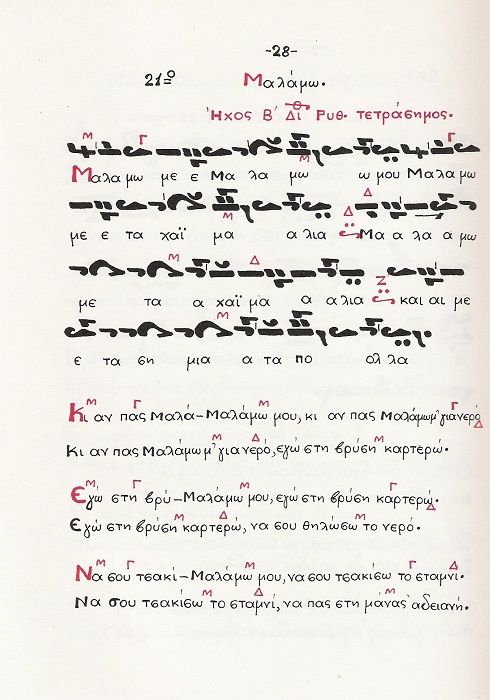 -28-
21ο Μαλάμω.
Ήχος Β΄ Δι Ρυθ. τετράσημος.
Μαλαμω με ε Μα λα μω ω μου Μαλαμω
με ε τα χαϊ μα α λια Μα α λα α μω
με τα α χαϊ μα α α λια και αι με
ε τα ση μια α τα πο ολ λα
Κι αν πας Μαλά-Μαλάμω μου, κι αν πας Μαλάμωμ' γιανερό
Κι αν πας Μαλάμω μ' γιανερό, εγώ στη βρύση καρτερώ.
Εγώ στη βρύ-Μαλάμω μου, εγώ στη βρύση καρτερώ.
Εγώ στη βρύση καρτερώ, να σου θηλώσω το νερό.
Να σου τσακί-Μαλάμω μου, να σου τσακίσω το σταμνί.
Να σου τσακίσω το σταμνί, να πας στη μάνας' αδειανή.